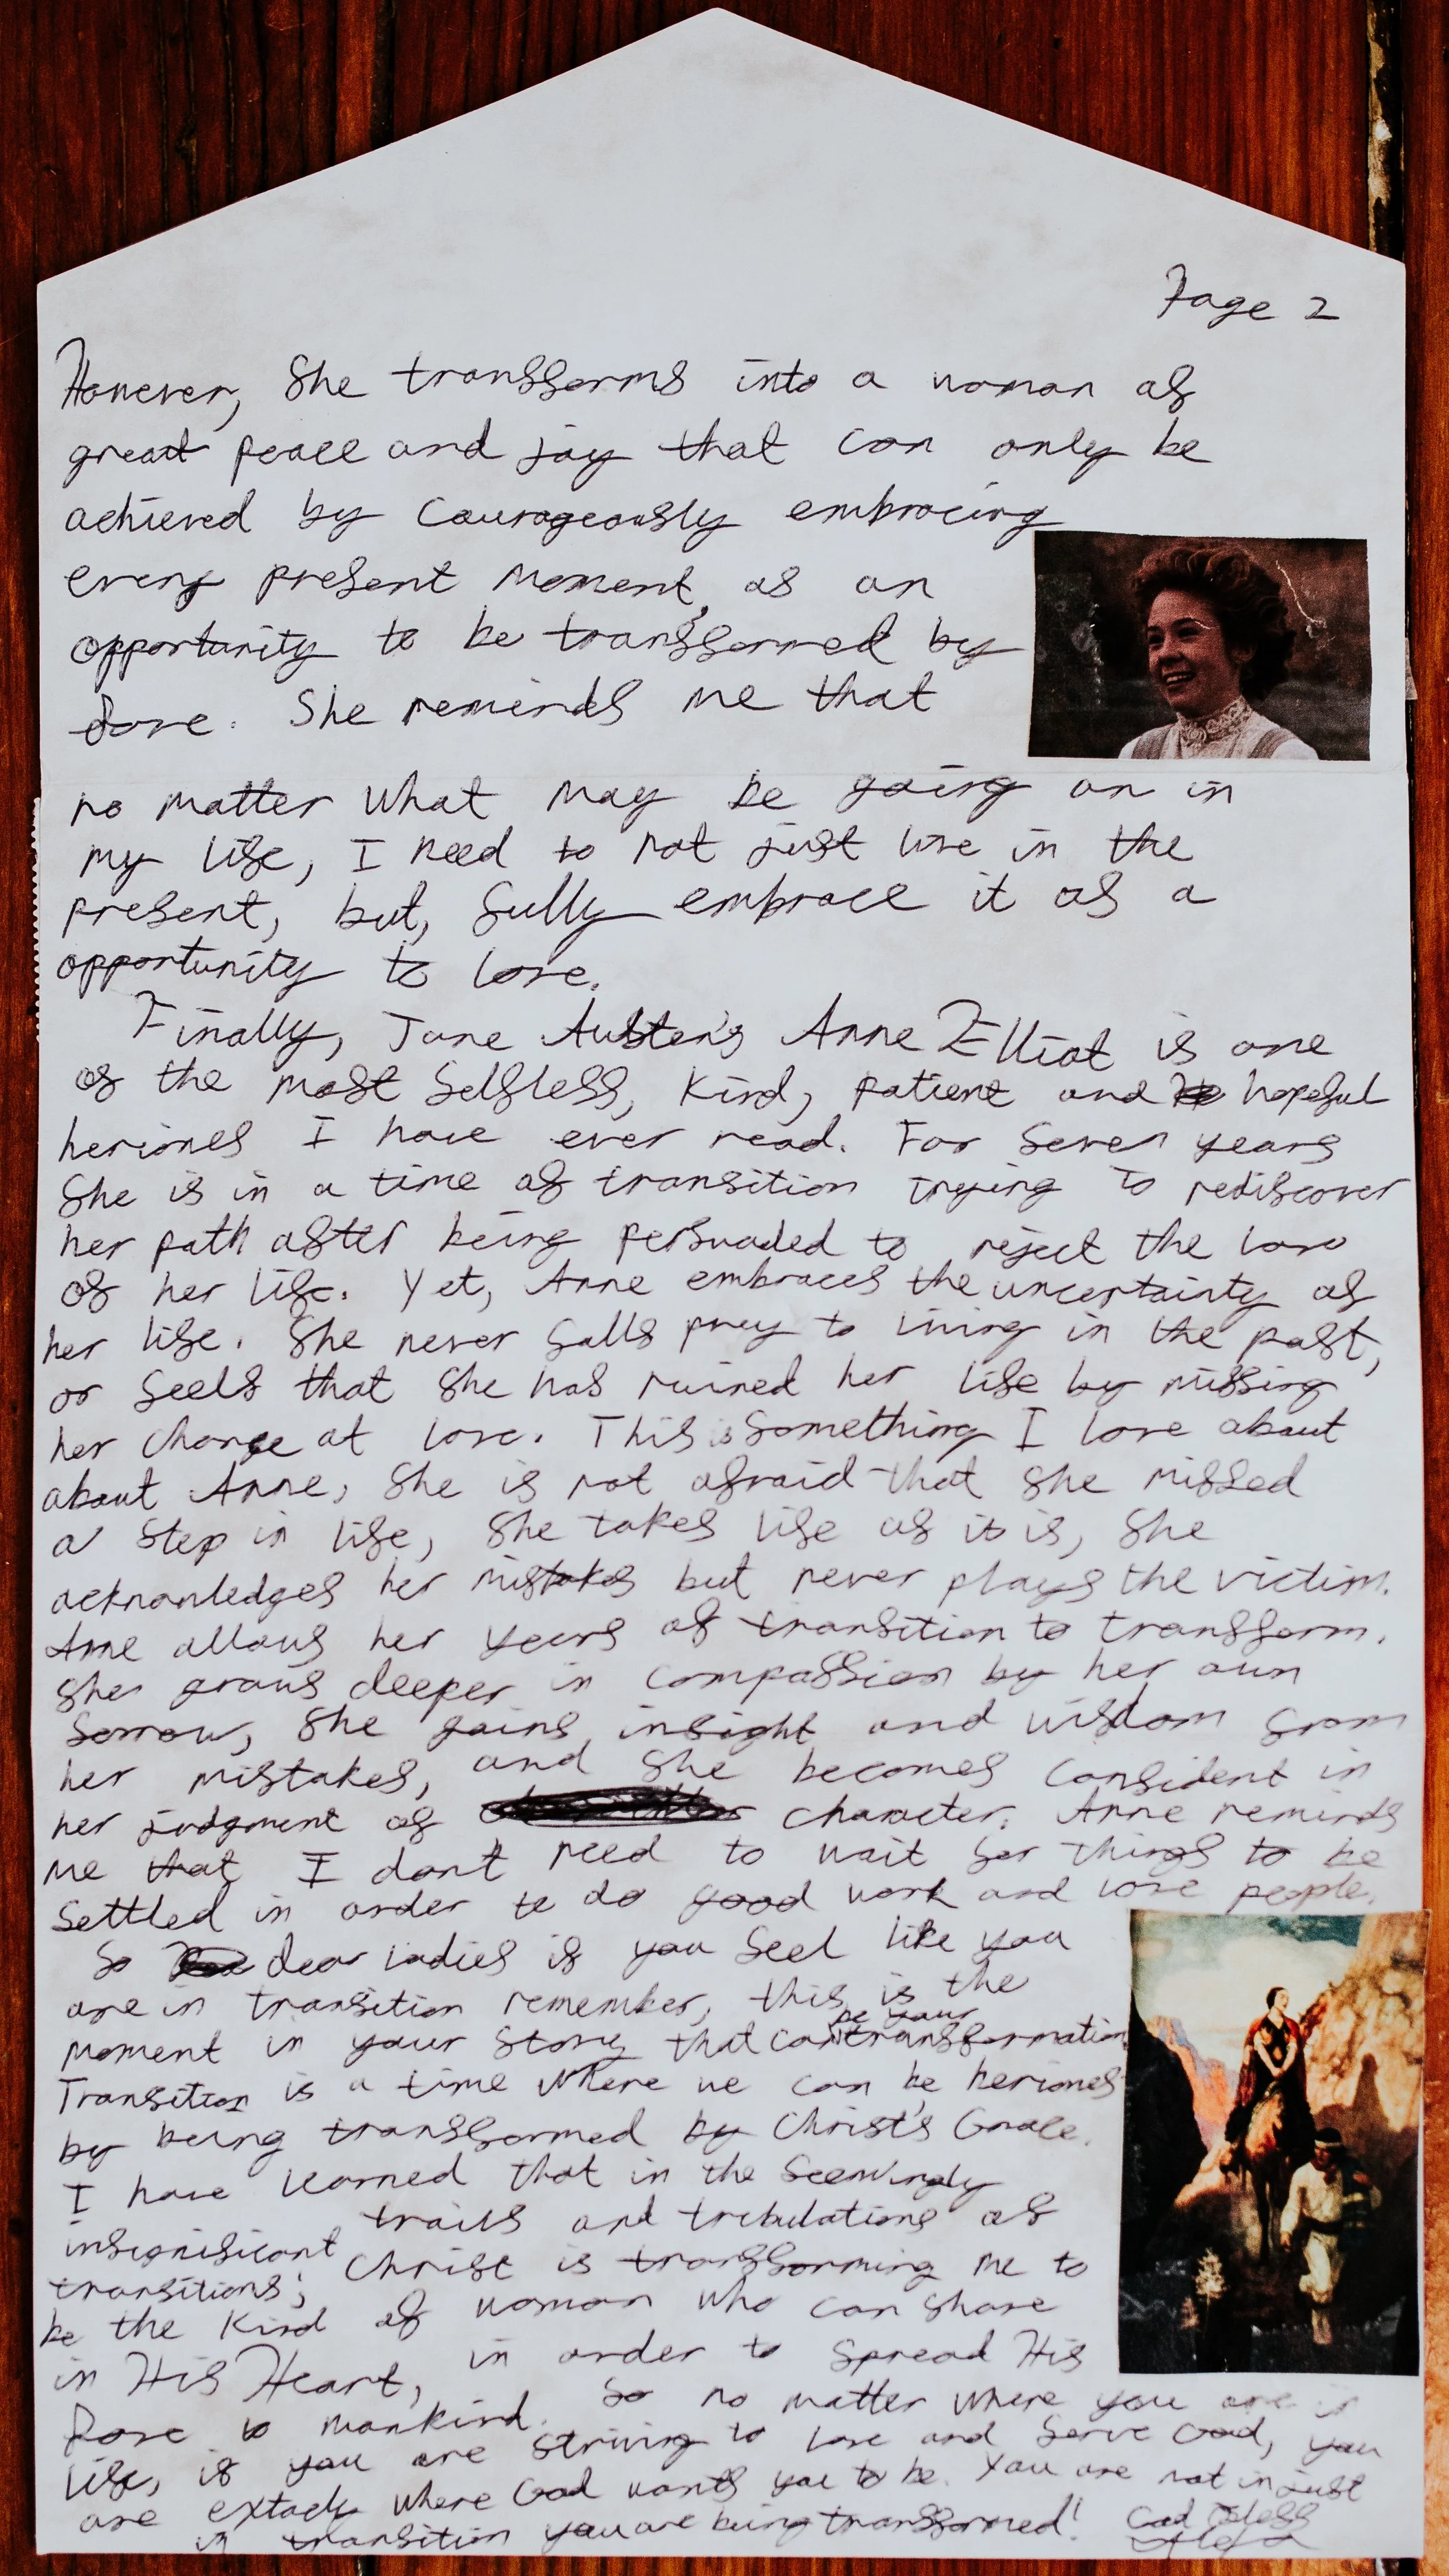 Page 2
However, She transforms into a woman of
great peace and joy that can only be
achieved by Courageously embracing
every present moment, as an
opportunity to be transformed by
Love. She reminds me that
no matter what may be going on in
my life, I need to not just live in the
present, but, fully embrace it as a
opportunity to love.
Finally, Jane Austen's Anne Elliot is one
of the most Selfless, Kind, patient and hopeful
heriones I have ever read. For Seven years
She is in a time of transition trying to rediscover
her path after being persuaded to reject the love
of her life. Yet, Anne embraces the uncertainty of
her life. She never falls prey to living in the past,
or feels that She has ruined her life by missing
her change at love. This is Something I love about
about Anne, She is not afraid that She missed
a step in life, She takes life as it is, She
acknowledges her mistakes but never plays the victim.
Anne allows her years of transition to transform.
She grows deeper in compassion by her own
Sorrow, She gains insight and wisdom from
her mistakes, and She becomes confident in
her judgment of character. Anne reminds
me that I don't need to wait for things to be
Settled in order to do good work and love people.
So dear ladies if you feel like you
are in transition remember, this is the
moment in your Story that can be your transformation
Transition is a time where we can be heriones
by being transformed by Christ's Grace.
I have learned that in the Seemingly
insignificant trails and tribulations of
transitions; Christ is transforming me to
be the Kind of woman who can share
in His Heart, in order to Spread His
Love to mankind. So no matter where you are in
life, if you are striving to love and Serve God, you
are extacly where God wants you to be. You are not in just
in transition you are being transformed! God Bless